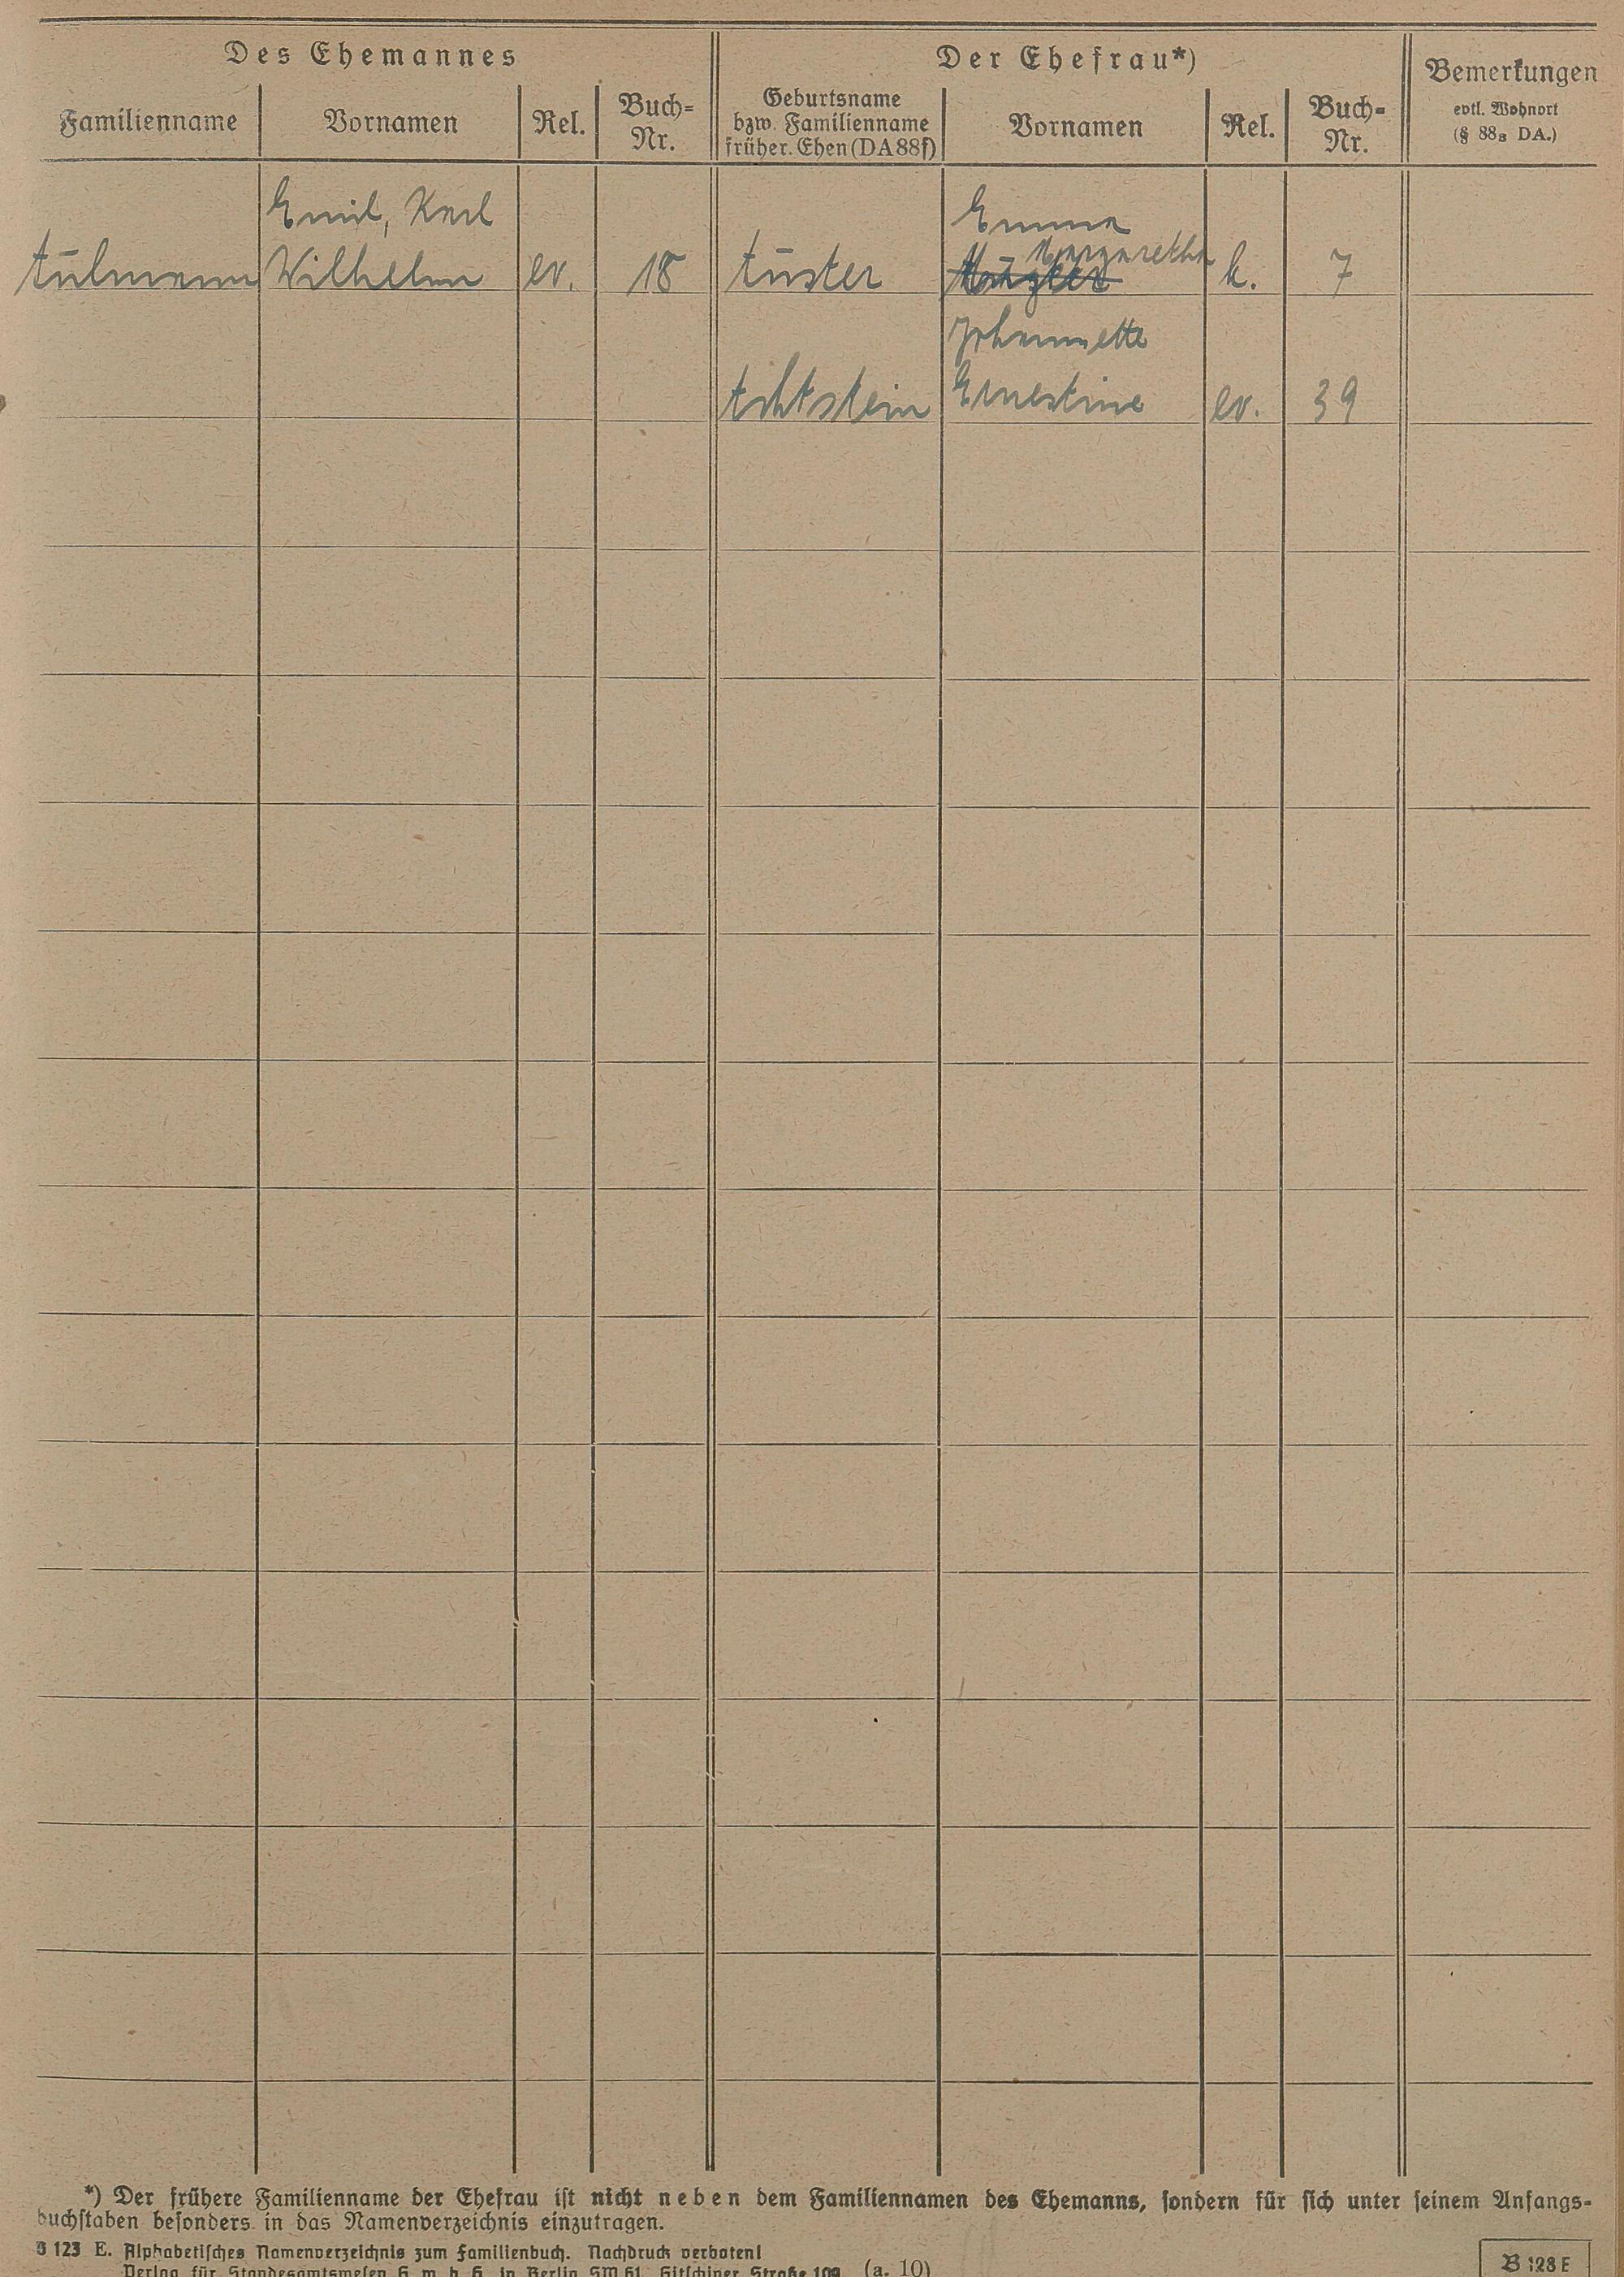 Des Ehemannes
Der Ehefrau*)
Bemerkungen
evtl. Wohnort
(§ 88a DA.)
Familienname
Vornamen
Rel.
Buch-
Nr.
Geburtsname
bzw. Familienname
früher. Ehen (DA 88f)
Vornamen
Rel.
Buch-
Nr.
Emil, Karl
Wilhelm
ev.
18
Emma
Margaretha
k.
7
Johannette
Ernestine
ev.
39
*) Der frühere Familienname der Ehefrau ist nicht neben dem Familiennamen des Ehemanns, sondern für sich unter seinem Anfangs-
buchstaben besonders in das Namenverzeichnis einzutragen.
B 123 E. Alphabetisches Namenverzeichnis zum Familienbuch. Nachdruck verboten!
Verlag für Standesamtswesen G. m. b. H. in Berlin SW 61, Gitschiner Straße 109 (a. 10)
B 123 E